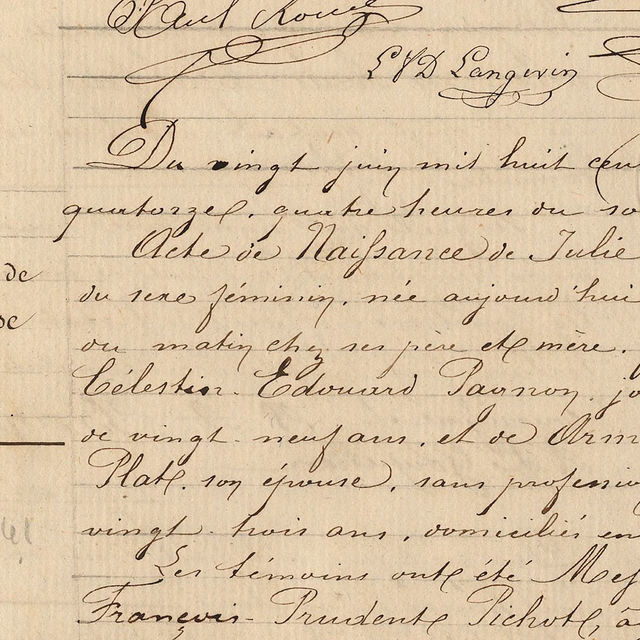 Paul
L V D Langevin
Du vingt juin mil huit cent
quatorze, quatre heures du so
Acte de Naissance de Julie
de
du sexe féminin, née aujourd'hui
du matin chez ses père et mère,
Célestin Edouard Pagnon, jo
de vingt-neuf ans, et de Arm
Plat, son épouse, sans profession
vingt-trois ans, domiciliés en
Les témoins ont été Mes
François-Prudent Pichot, â